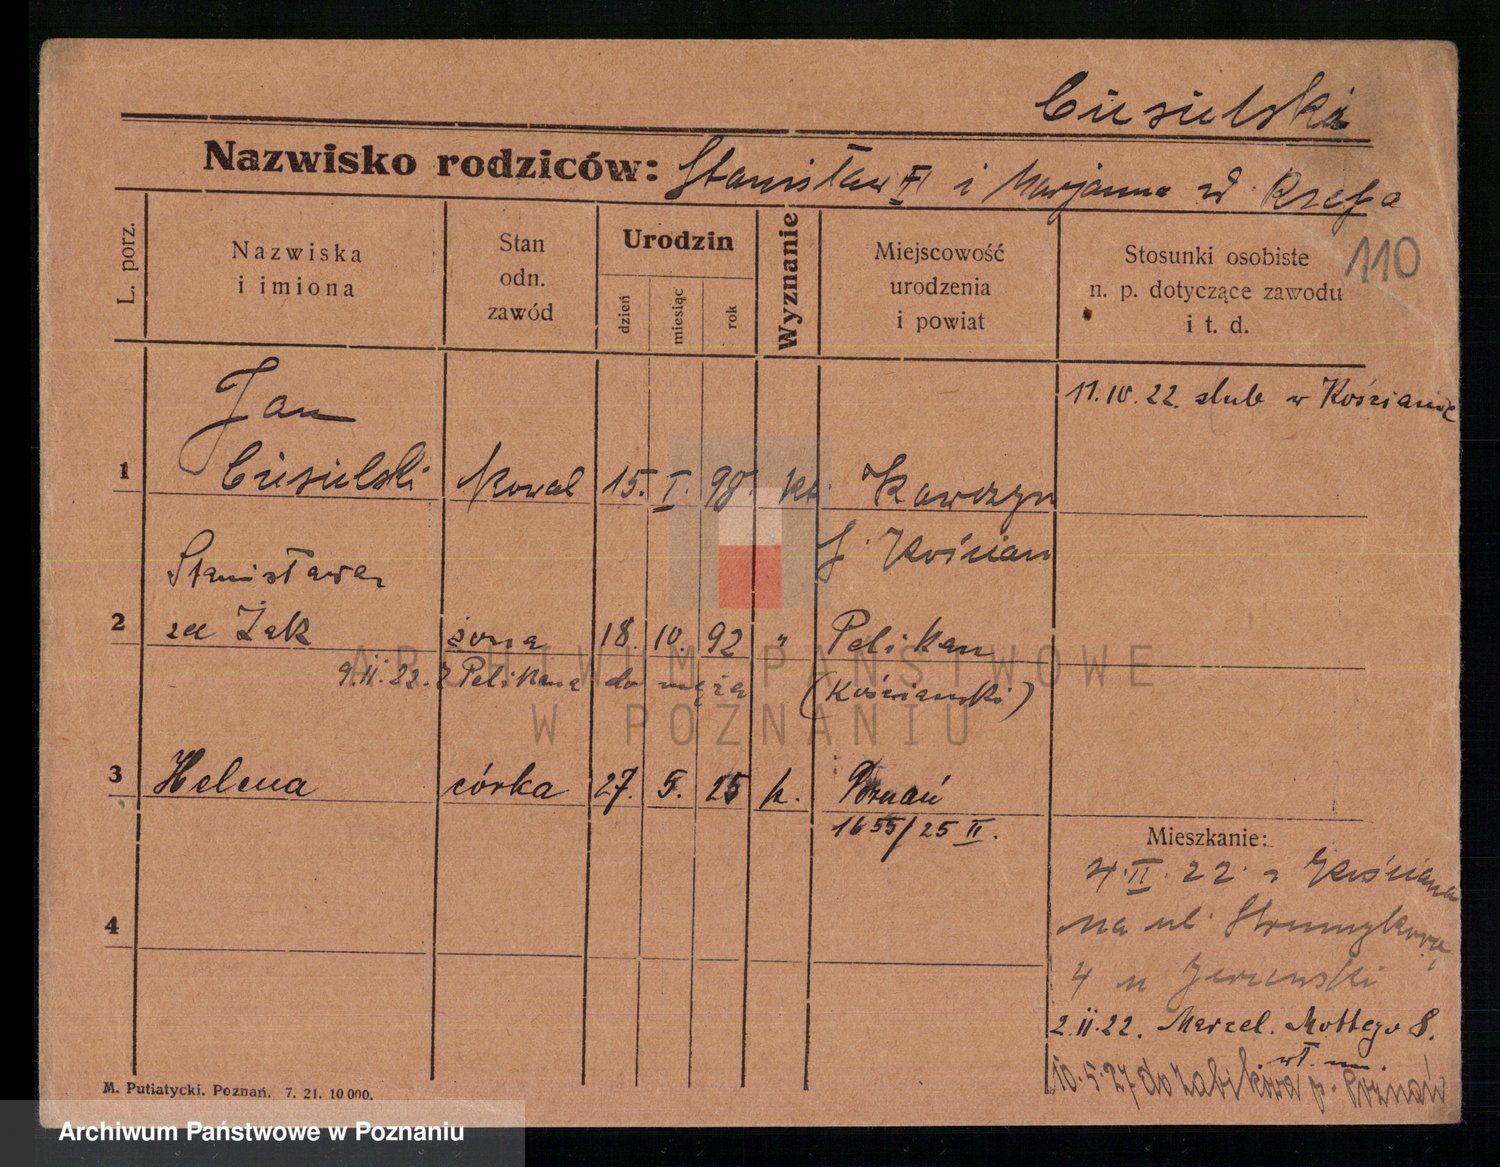 Ciesielski
Nazwisko rodziców: Stanisław † i Marjanna zd Rzepa
110
L. porz.
Nazwiska i imiona
Stan odn. zawód
Urodzin
dzień
miesiąc
rok
Wyznanie
Miejscowość urodzenia i powiat
Stosunki osobiste n. p. dotyczące zawodu i t. d.
11.IV.22. slub w Kościanie
Jan
1 Ciesielski kowal 15. I. 98. kt.
p. Kościan
Stanisława
2 zd Żak żona 18. 10. 92 " Pelikan
9.II.22. z Pelikana do męża (Kościański)
3 Helena córka 27. 5. 25 k. Poznań
1655/25 II.
Mieszkanie:
4.II.22. z Kościana
na ul.
4
4 u
2.II.22. Marcel. Mottego 8.
wł. m.
10.5.27 do Żabikowa p. Poznań
M. Putiatycki. Poznań. 7. 21. 10 000.
ARCHIWUM PAŃSTWOWE
W POZNANIU
Archiwum Państwowe w Poznaniu